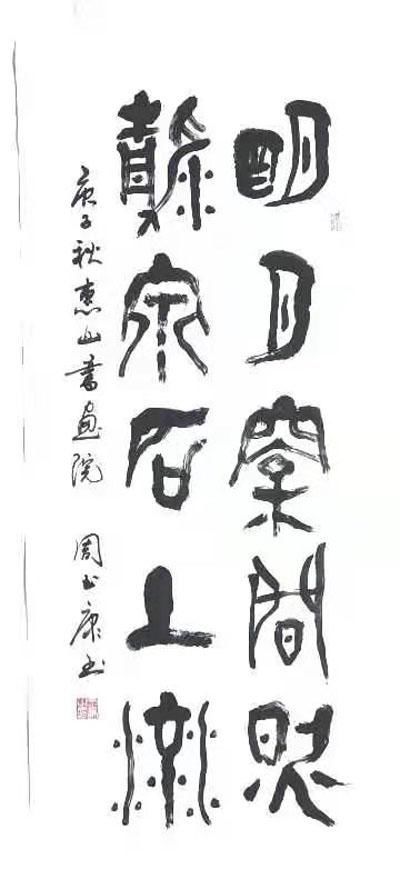 明月松間照
清泉石上流
庚子秋惠山書画院 周 康书